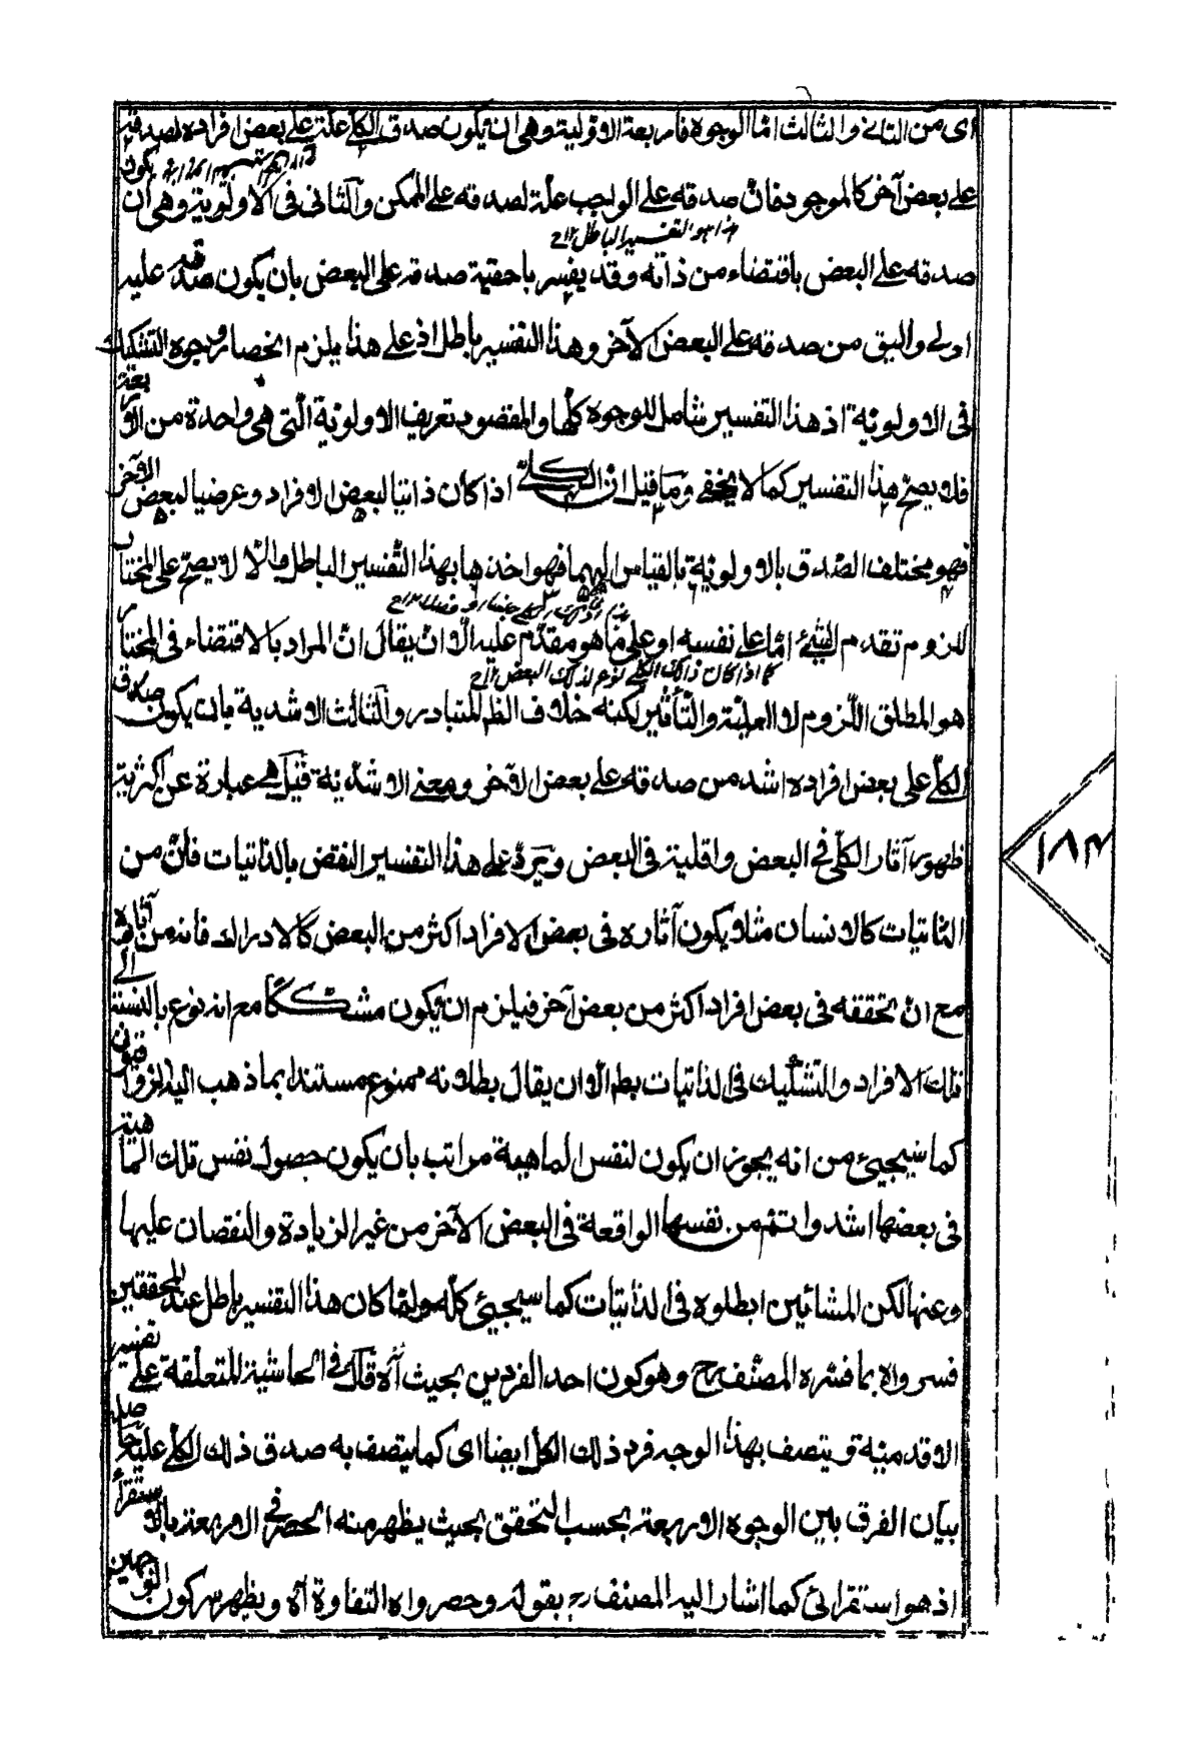 اى من الثانى والثالث امّا الوجوه فاربعة الاوّلية وهى ان يكون صدق الكلّ علة على بعض افراده لصدقه
على بعض آخر كالموجود فانّ صدقه على الواجب علّة لصدقه على الممكن والثانى فى الاولويّة وهى ان يكون
هذا هو التفسير الباطل ١٢ ح
صدقه على البعض باقتضاء من ذاته وقد يفسر باحقية صدقه على البعض بان يكون صدقه عليه
اولى واليق من صدقه على البعض الآخر وهذا التفسير باطل اذ على هذا يلزم انحصار وجوه التشكيك
فى الاولوية اذ هذا التفسير شامل للوجوه كلّها والمقصود تعريف الاولوية الّتى هى واحدة من الاربعة
فلا يصحّ هذا التفسير كما لا يخفى وما قيل انّ الكلىّ اذا كان ذاتيا لبعض الافراد وعرضيا لبعض الآخر
فهو مختلف الصّدق بالاولوية بالقياس اليهما فهو اخذها بهذا التّفسير الباطل والّا لا يصحّ على المختار
للزوم تقدم الشئ امّا على نفسه او على ما هو مقدّم عليه الّا ان يقال انّ المراد بالاقتضاء فى المختار
كما اذا كان ذلك الكلى نوع لذلك البعض ١٢ ح
هو المطلق اللّزوم لا العليّة والتّأثير لكنه خلاف الظم المتبادر والثالث الاشدية بان يكون صدق
الكلّى على بعض افراده اشد من صدقه على بعض الآخر ومعنى الاشدّية قيل هى عبارة عن اكثرية
ظهور آثار الكلّى فى البعض واقلية فى البعض ويرد على هذا التفسير النقض بالذاتيات فانّ من
الذاتيات كالانسان مثلا يكون آثاره فى بعض الافراد اكثر من البعض كالادراك فانه من آثاره
مع انّ تحققه فى بعض افراد اكثر من بعض آخر فيلزم ان يكون مشككا مع انه نوع بالنسبة الى
تلك الافراد والتشكّيك فى الذاتيات بطم الّا ان يقال بطلانه ممنوع مستندا بما ذهب اليه الاشراقيون
كما سيجيئ من انه يجوز ان يكون لنفس الماهية مراتب بان يكون حصول نفس تلك الماهية
فى بعضها اشد واتم من نفسها الواقعة فى البعض الآخر من غير الزيادة والنقصان عليها
وعنها لكن المشائين ابطلوه فى الذاتيات كما سيجيئ كلّه ولما كان هذا التفسير باطل عند المحققين
فسروا بما فسّره المصنّف رح وهو كون احد الفردين بحيث آه قال فى الحاشية المتعلقة على تفسير
الاقدمية ويتصف بهذا الوجه فرد ذلك الكل ايضا اى كما يتصف به صدق ذلك الكلى عليه حاصله
بيان الفرق بين الوجوه الاربعة بحسب التحقق بحيث يظهر منه الحصر فى الاربعة بالاستقراء
اذ هو استقرائى كما اشار اليه المصنف رح بقوله وحصروا التفاوة آه ويظهر سر كون الوجهين
١٨٣